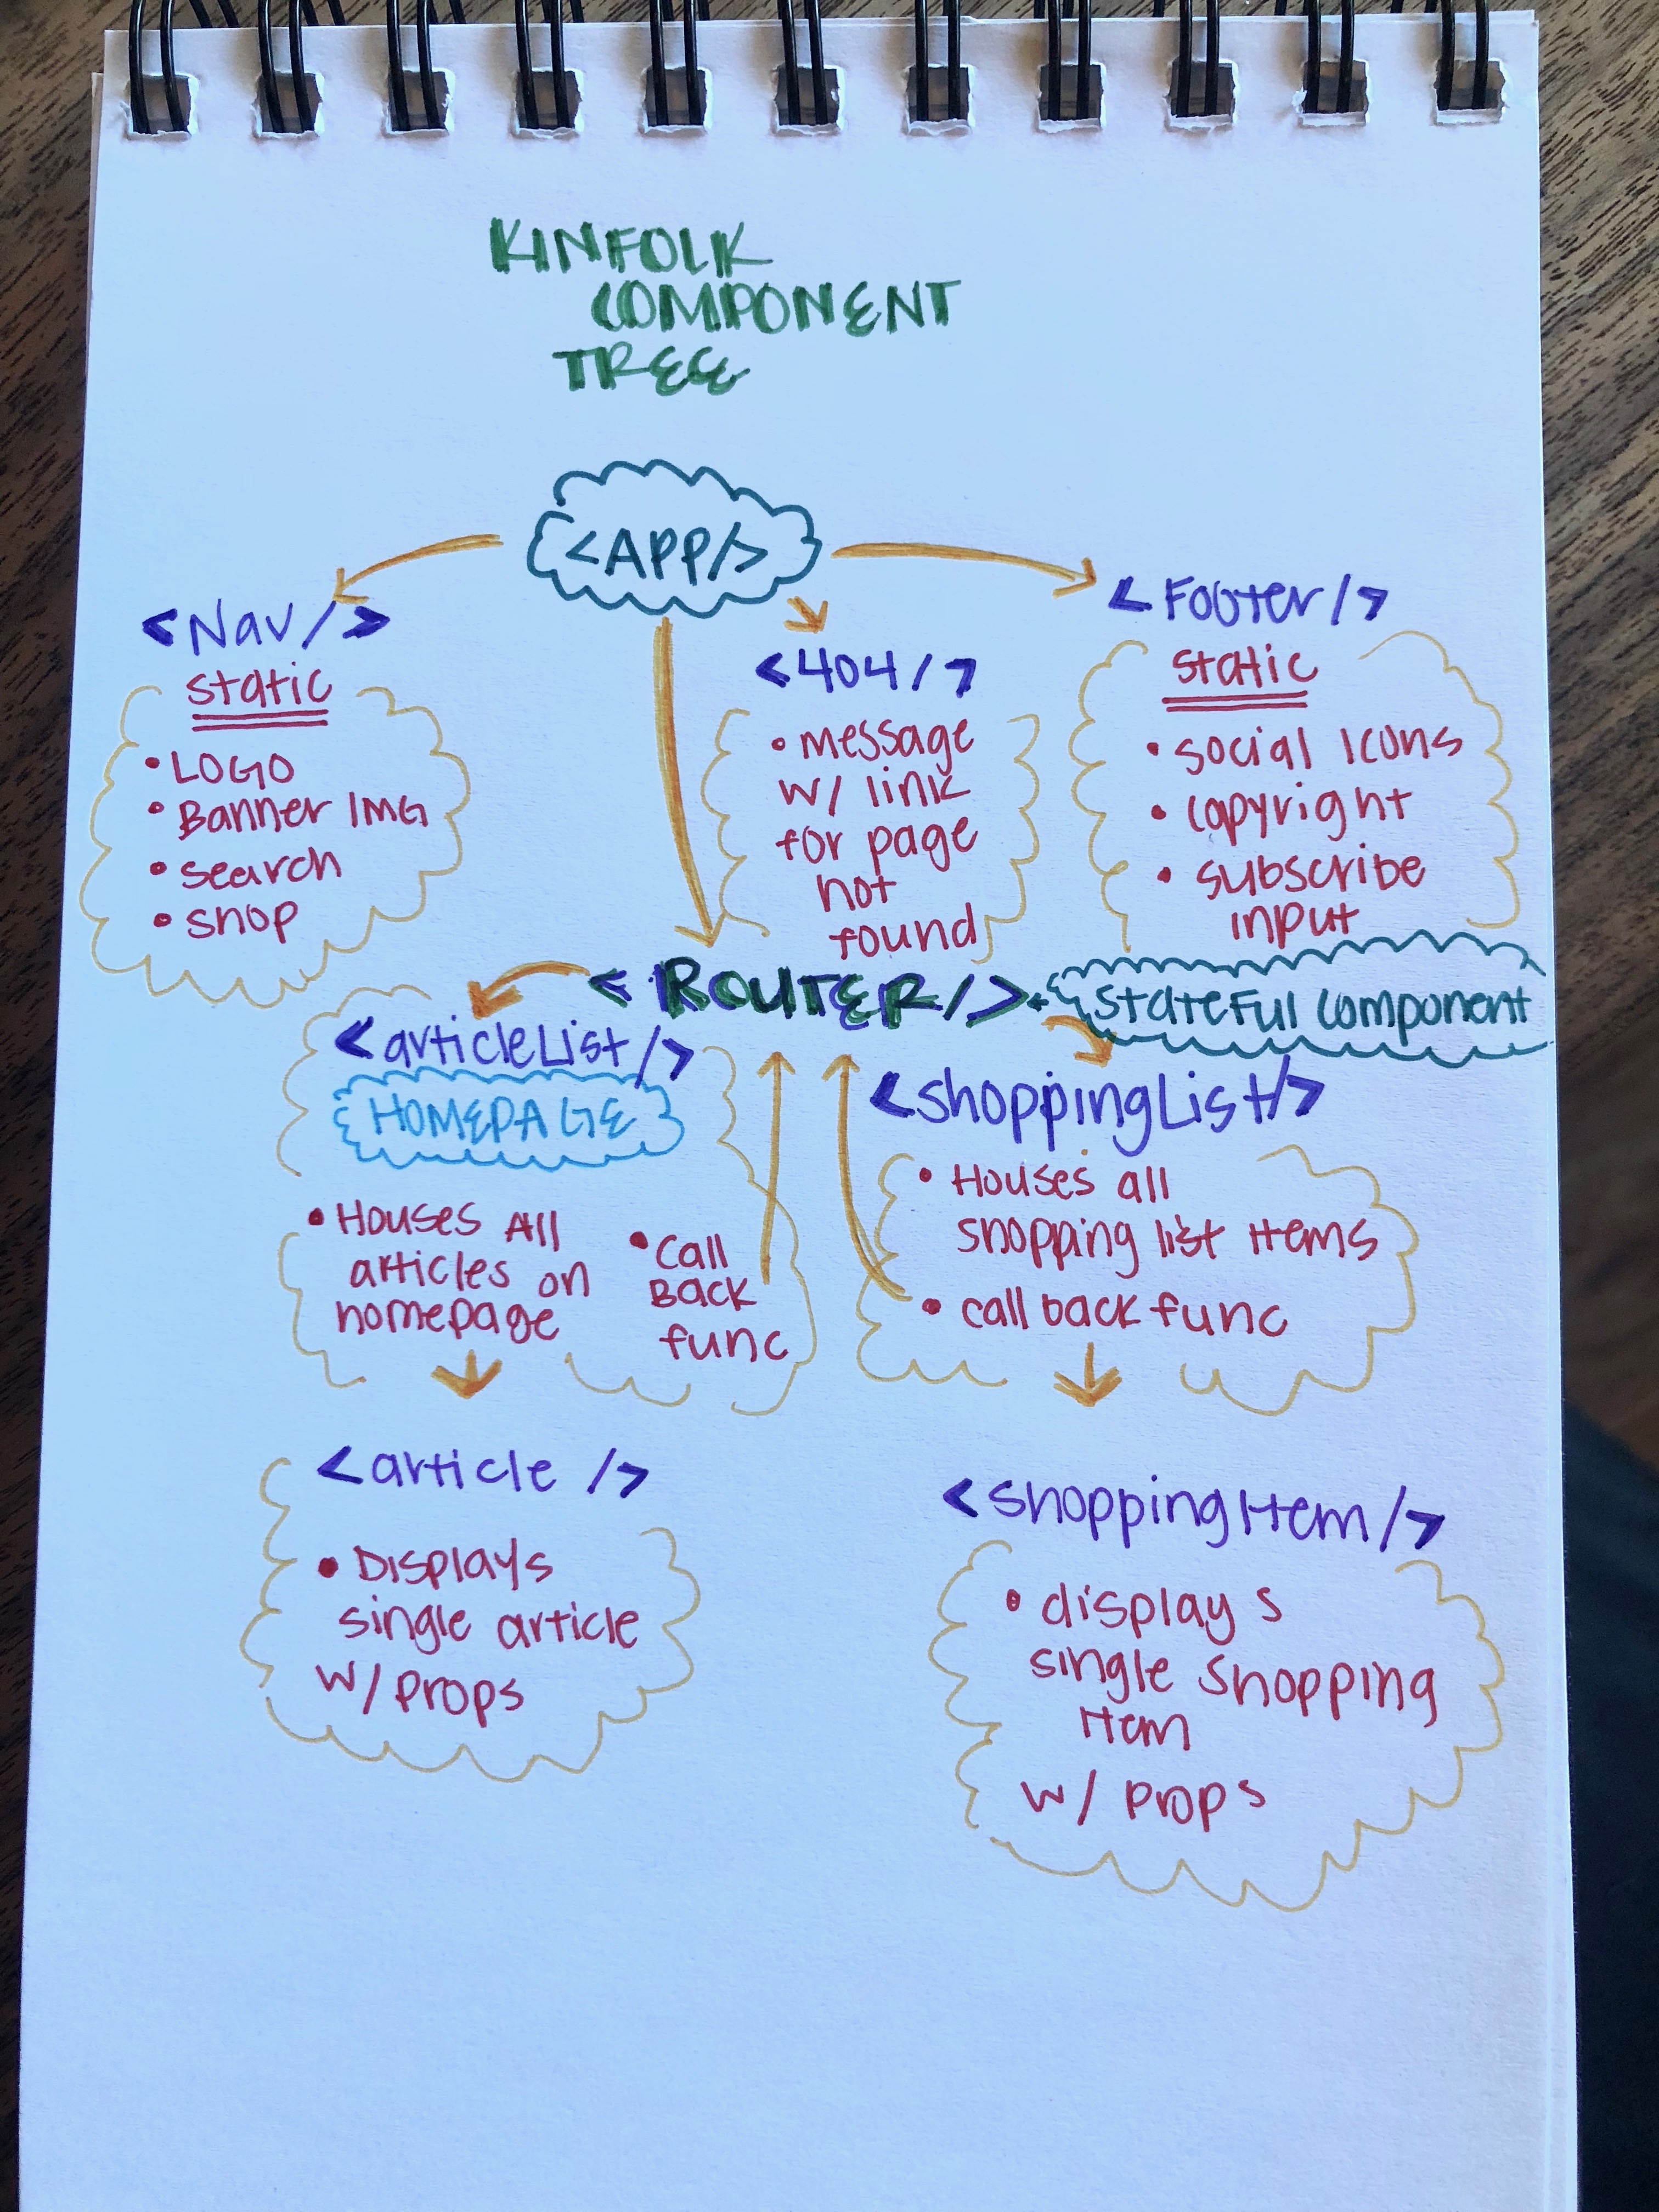 KINFOLK
COMPONENT
TREE
<APP/>
<Nav/>
static
• LOGO
• Banner IMG
• search
• shop
<404/>
• message
w/ link
for page
not
found
<Footer/>
static
• social icons
• copyright
• subscribe
input
<ROUTER/>
• stateful component
<articleList/>
HOMEPAGE
• Houses All
articles on
homepage
• call
Back
func
<shoppingList/>
• Houses all
shopping list items
• call back func
<article />
• Displays
single article
w/ props
<shoppingItem/>
• displays
single shopping
item
w/ props